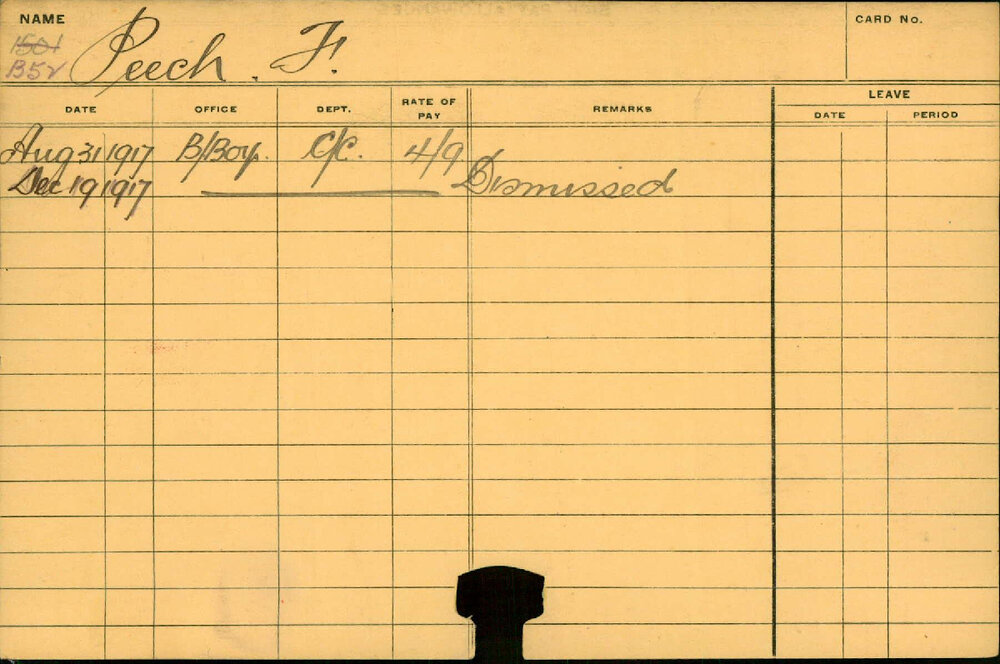 NAME
CARD No.
1501
B52
Peech . F.
DATE OFFICE DEPT. RATE OF PAY REMARKS LEAVE
DATE PERIOD
Aug 31 1917 B/Boy. C/C. 4/9
Dec 19 1917 Dismissed